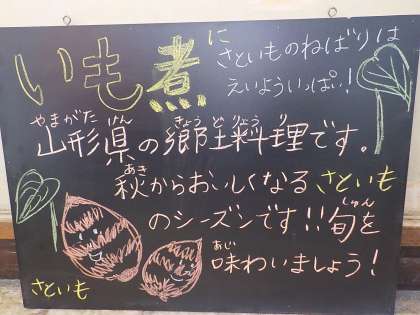 いも煮に
さといものねばりは
えいよういっぱい!
やまがた けん きょうどりょうり
山形県の郷土料理です。
あき
秋からおいしくなるさといも
のシーズンです!!旬を
しゅん
あじ
味わいましょう!
さといも